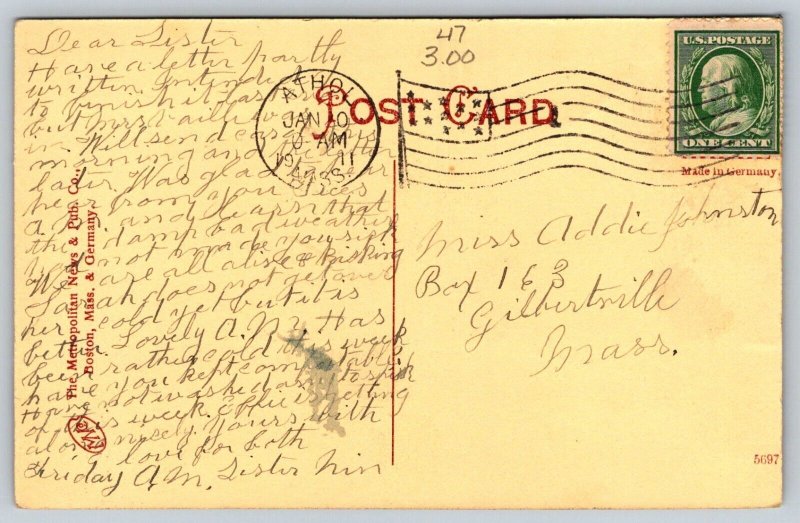 47
3.00
U.S. POSTAGE
ONE CENT
POST CARD
ATHOL
JAN 10
AM
1911
MASS.
Made in Germany.
Miss Addie Johnston
Box 163
Gilbertville
Mass.
Dear Sister
Have a letter partly
written. Intended
to finish it last
but Mrs. came
in. Will send this
morning and letter
later. Was glad to hear
from you
A.M. and learn that
the damp bad weather
does not make you sick
We are all alive & kicking
Sarah does not get over
her cold yet but it is
better. Lovely A.M. Has
been rather cold this week
have you kept comfortable
Have not washed any to speak
of this week. Effie is getting
along nicely. Yours with
love for both
Friday A.M. Sister Min
The Metropolitan News & Pub. Co.,
Boston, Mass. & Germany.
5697